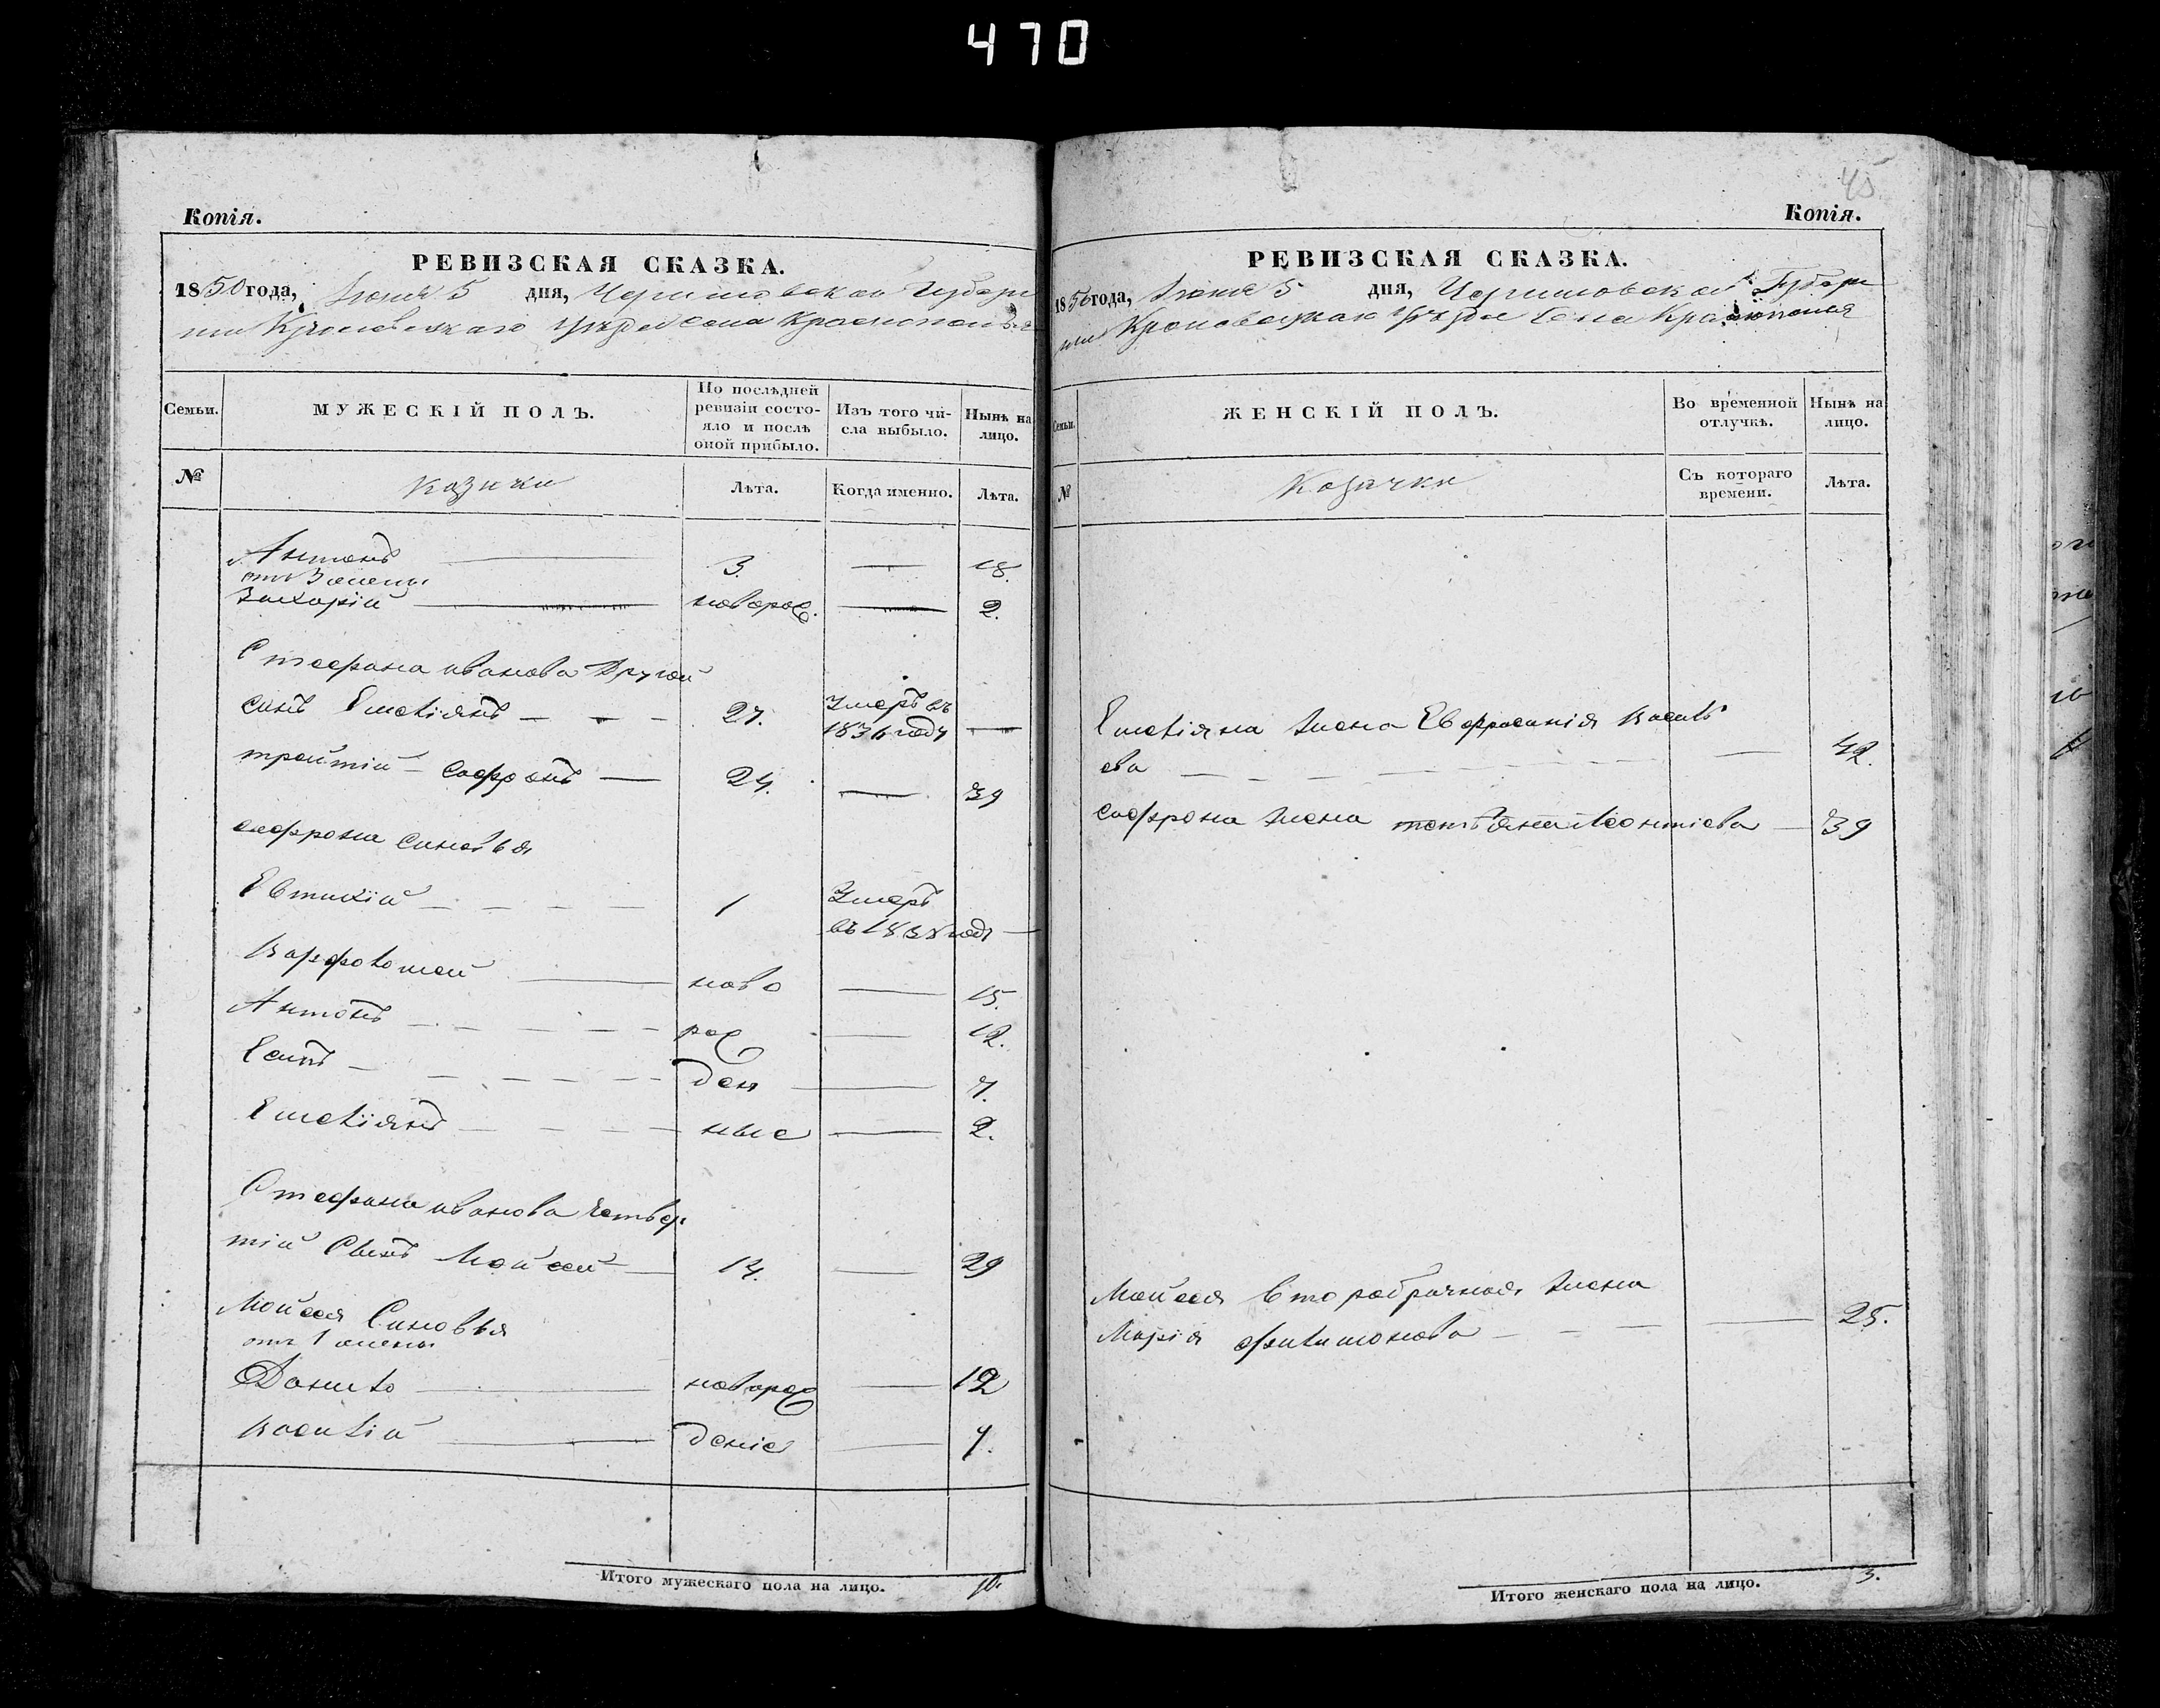 470
Копія.
РЕВИЗСКАЯ СКАЗКА.
1850 года, Іюня 5 дня, Черниговской Губер
ніи Кролевецкаго уѣзда села Краснополья
Семьи.
МУЖЕСКІЙ ПОЛЪ.
По послѣдней ревизіи состояло и послѣ оной прибыло.
Изъ того числа выбыло.
Нынѣ на лицо.
№
козаки
Лѣта.
Когда именно.
Лѣта.
Антонъ 3. — 18.
отъ 3 жены
Захарій новорож. — 2.
Стефана иванова другой
синъ Емеліянъ 27. Умеръ въ 1836 году —
третій Софронъ — 24. — 39
софрона синовья
Евтихій 1 Умеръ въ 1838 году —
Варфоломей ново — 15.
Антонъ рож — 12.
Есипъ ден — 7.
Емеліянъ ные — 2.
Стефана иванова четвер
тій Сынъ Мойсей 14. — 29
Мойсея Синовья
отъ 1 жены
Данило новорож — 12
Василій деніе — 7.
Итого мужескаго пола на лицо. 10.
45
Копія.
РЕВИЗСКАЯ СКАЗКА.
1850 года, Іюня 5 дня, Черниговской Губер
ніи Кролевецкаго уѣзда Села Краснополья
Семьи.
ЖЕНСКІЙ ПОЛЪ.
Во временной отлучкѣ.
Нынѣ на лицо.
№
Козачки
Съ котораго времени.
Лѣта.
Емеліяна жена Евфросинія Василь
ева — 42.
софрона жена татьяна Леонтіева — 39
Мойсея второбрачная жена
Марія филимонова — 25.
Итого женскаго пола на лицо. 3.